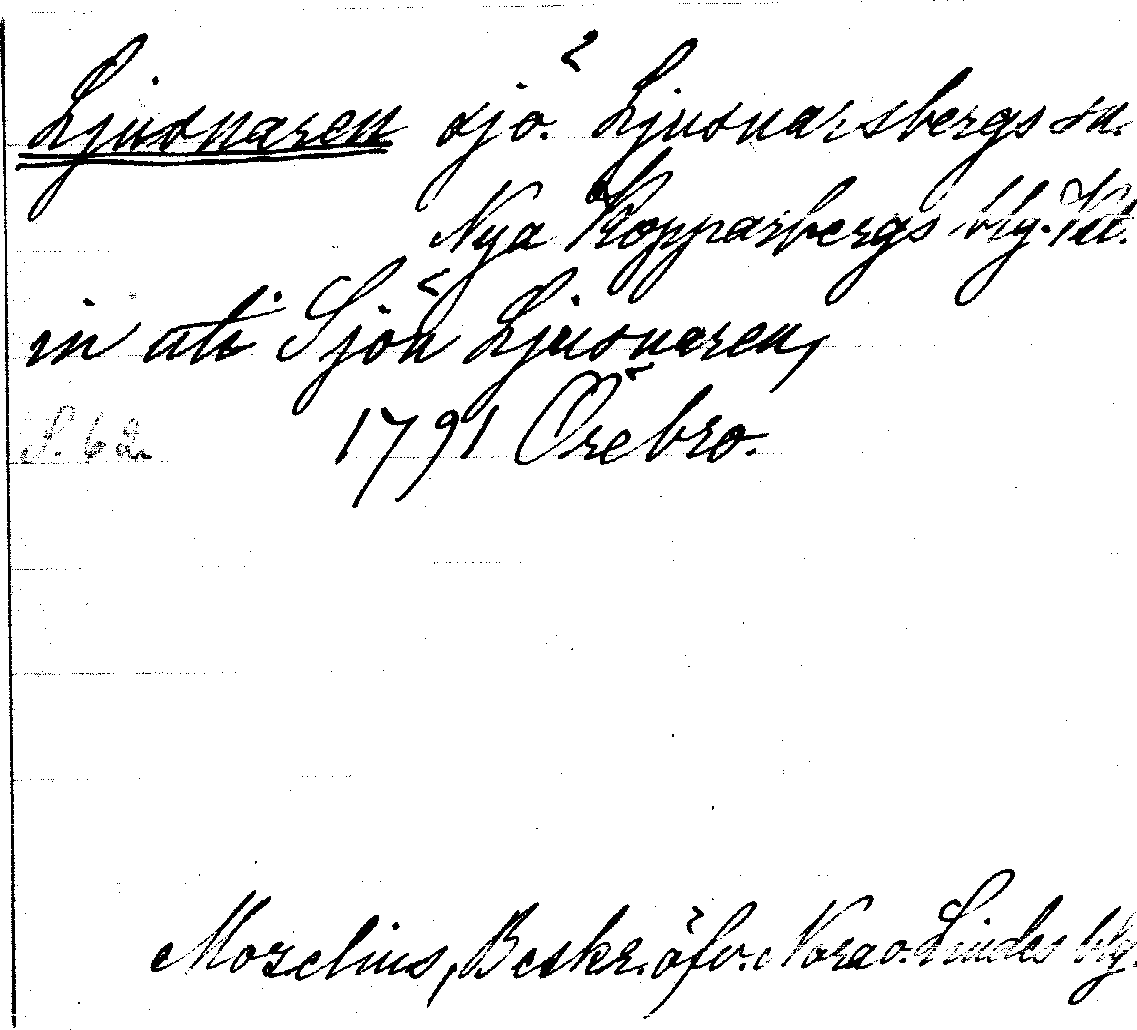 Ljusnaren sjö. Ljusnarsbergs sn.
Nya Kopparbergs blg.
in uti Sjön Ljusnaren,
S. 62. 1791 Örebro.
Morelius, Beskr. öfv. Nora o. Lindes blg.